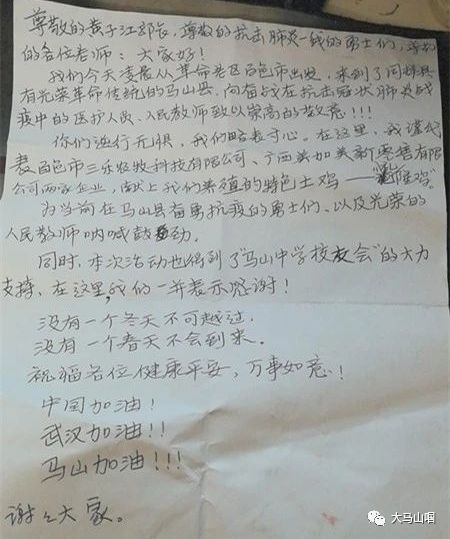 尊敬的黄子江部长，尊敬的抗击肺炎一线的勇士们，尊敬
的各位老师：大家好！
我们今天凌晨从革命老区百色市出发，来到了同样具
有光荣革命传统的马山县，向奋战在抗击冠状肺炎战
疫中的医护人员、人民教师致以崇高的敬意！！！
你们逆行无惧，我们略表寸心。在这里，我谨代
表百色市三乐农牧科技有限公司、广西美加美新枣塘有限
公司两家企业，献上我们养殖的特色土鸡——
为当前在马山县奋勇抗疫的勇士们、以及光荣的
人民教师呐喊鼓劲。
同时，本次活动也得到了“马山中学校友会”的大力
支持、在这里，我们一并表示感谢！
没有一个冬天不可越过．
没有一个春天不会到来．
祝福各位健康平安，万事如意！
中国加油！
武汉加油！！
马山加油！！！
谢々大家。
大马山咽